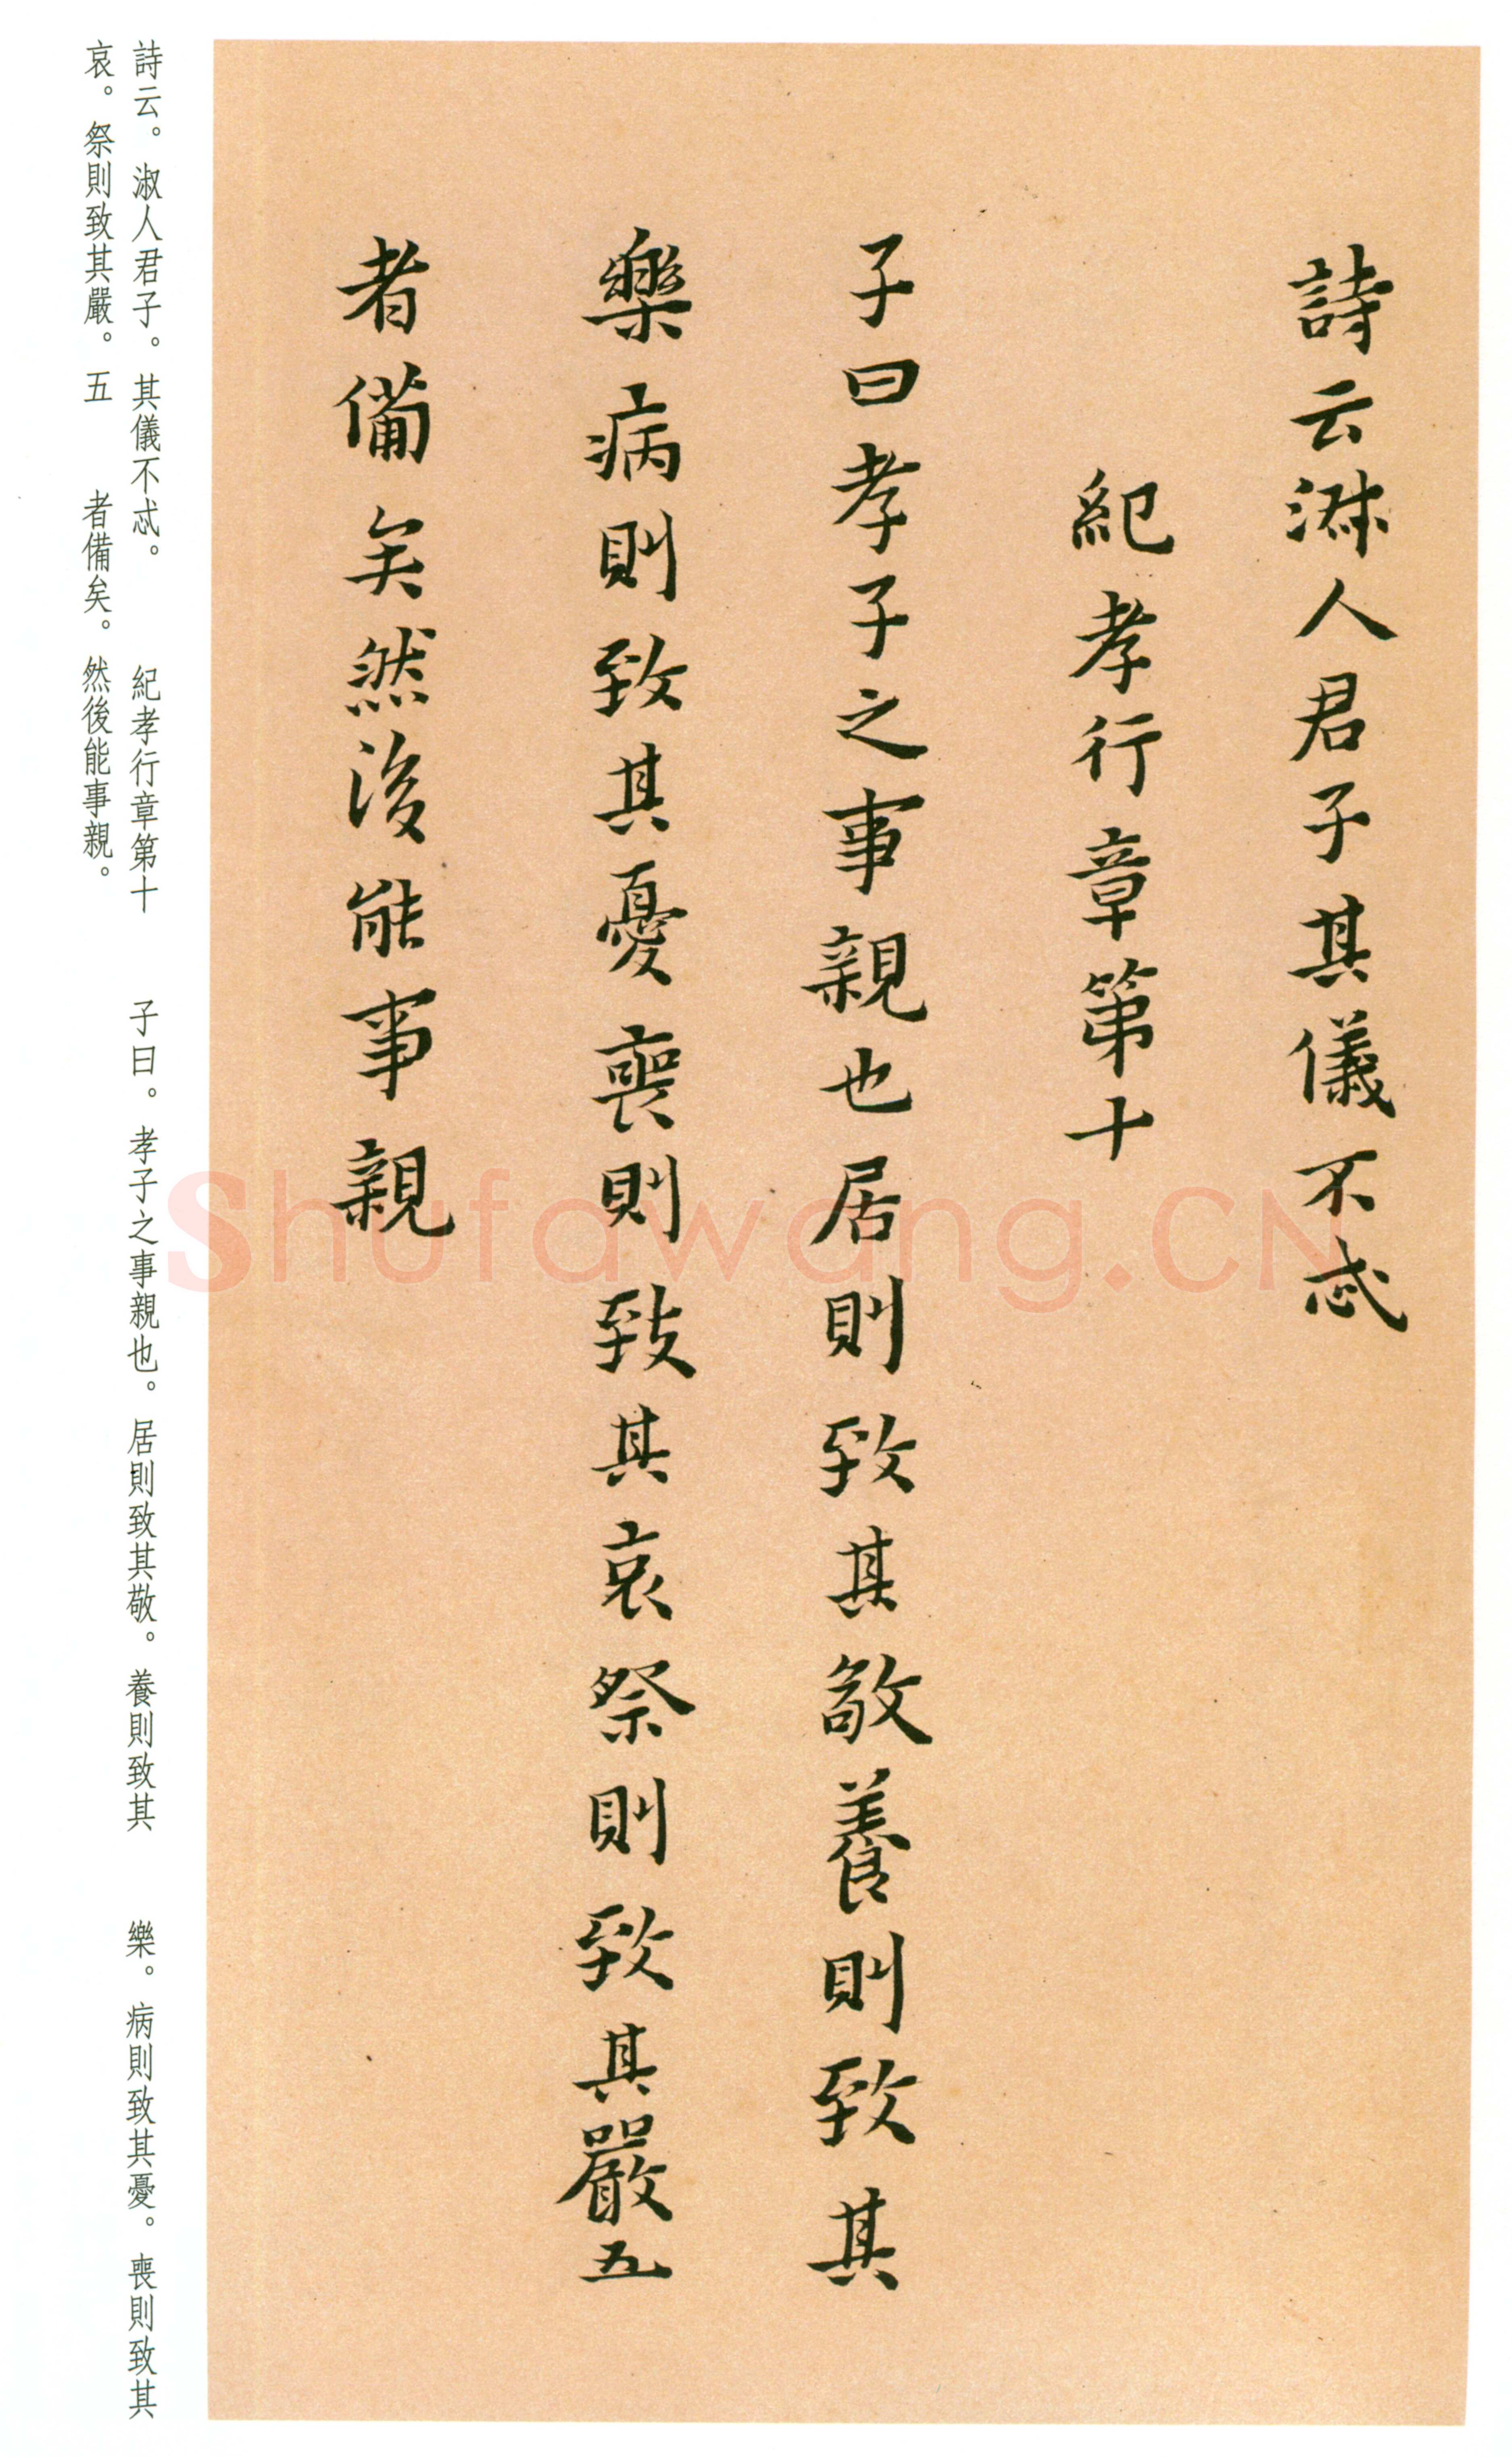 詩云淑人君子其儀不忒
紀孝行章第十
子曰孝子之事親也居則致其敬養則致其
樂病則致其憂喪則致其哀祭則致其嚴五
者備矣然後能事親
詩云。淑人君子。其儀不忒。 紀孝行章第十 子曰。孝子之事親也。居則致其敬。養則致其 樂。病則致其憂。喪則致其
哀。祭則致其嚴。五 者備矣。然後能事親。
Shufawang.CN